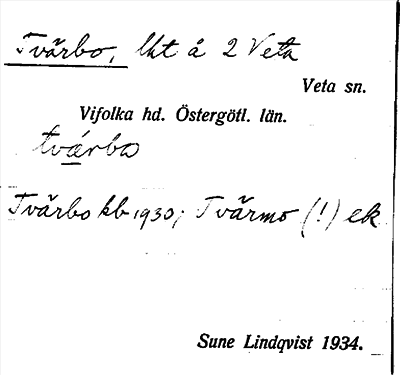 Tvärbo, lht å 2 Veta
Veta sn.
Vifolka hd. Östergötl. län.
tvárbo
Tvärbo kb 1930; Tvärmo (!) ek
Sune Lindqvist 1934.